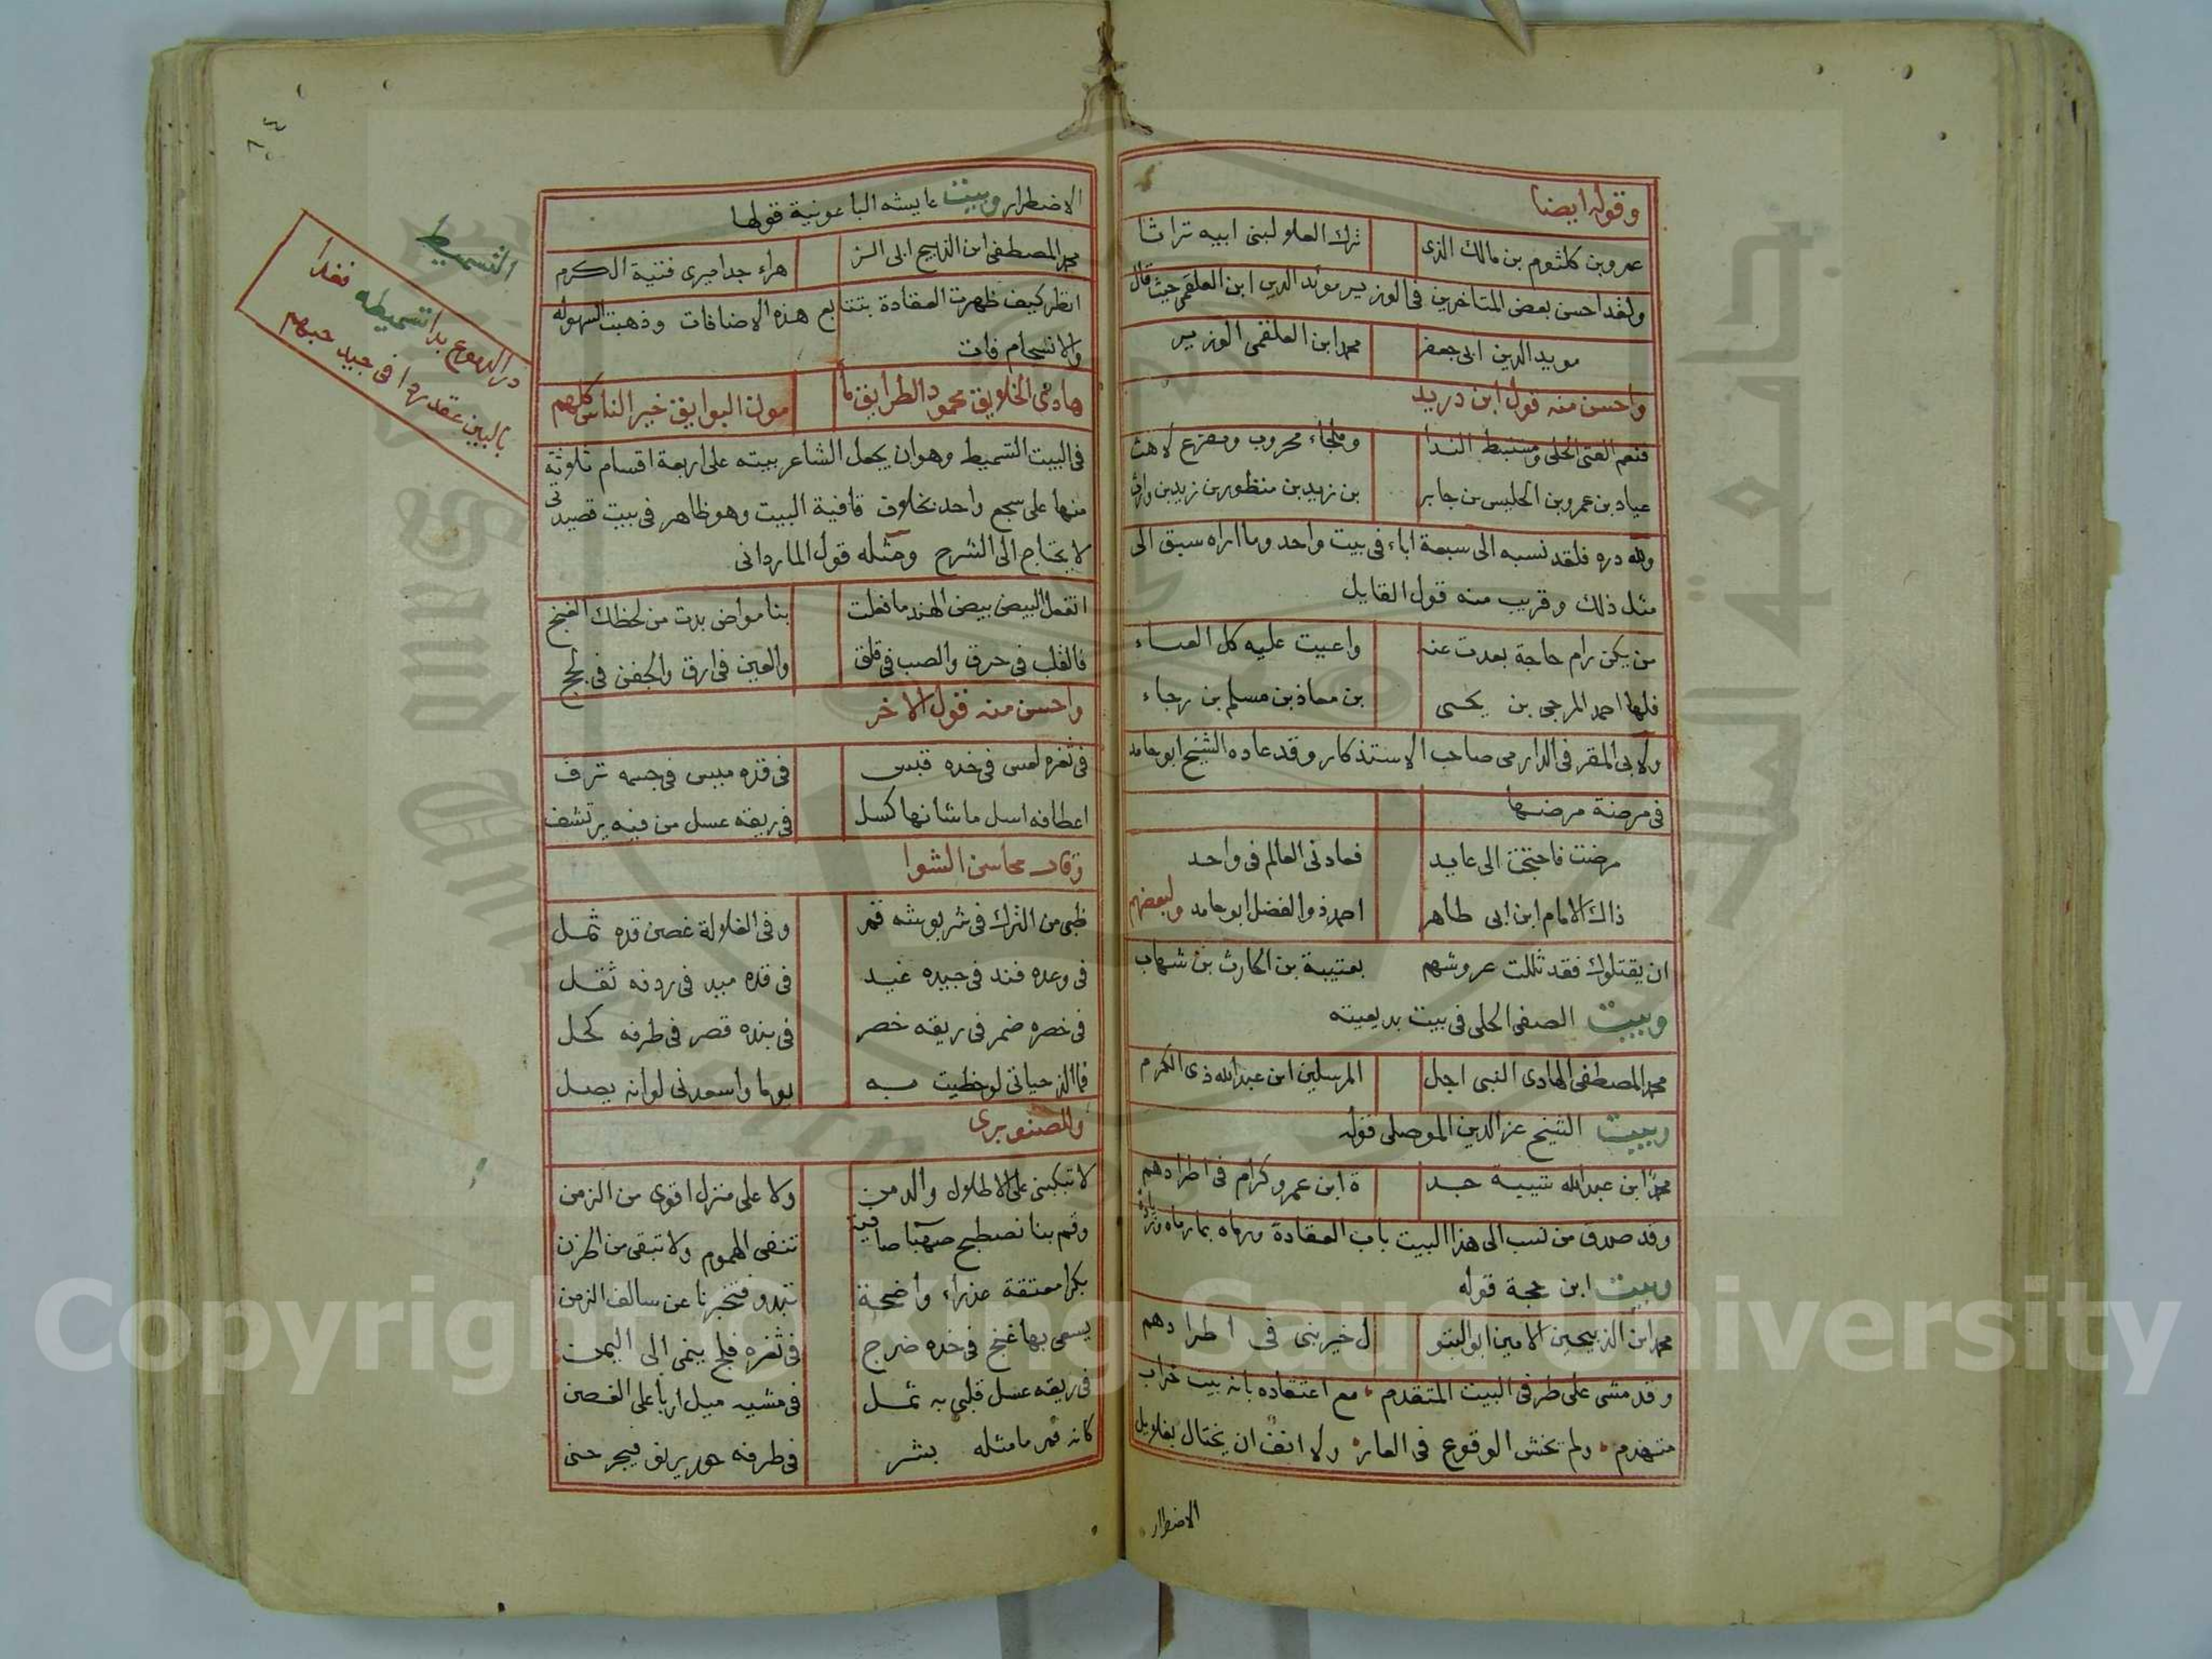 وقوله ايضا
عمرو بن كلثوم بن مالك الذى ترك العلو لبنى ابيه تراثا
ولقد احسن بعض المتاخرين فى الوزير مويد الدين ابن العلقمى حيث قال
مويد الدين ابى جعفر محمد ابن العلقمى الوزير
واحسن منه قول ابن دريد
فنعم الفتى الجلى ومستنبط الندا وملجاء محروب ومفزع لاهث
عياد بن عمرو بن الحليس بن جابر بن زيد بن منظور بن زيد بن وارث
ولله دره فلقد نسبه الى سبعة اباء فى بيت واحد وما اراه سبق الى
مثل ذلك وقريب منه قول القايل
من يكن رام حاجة بعدت عنه واعيت عليه كل العساء
فلها احمد المرجى بن يحيى بن معاذ بن مسلم بن رجاء
ولابى المقر فى الدارمى صاحب الاستذكار وقد عاده الشيخ ابو حامد
فى مرضة مرضها
مرضت فاحتجت الى عايد فعادنى العالم فى واحد
ذاك الامام ابن ابى طاهر احمد ذو الفضل ابو حامد ولبعضهم
ان يقتلوك فقد ثللت عروشهم بعتيبة بن الحارث بن شهاب
وبيت الصفى الحلى فى بيت بديعيته
محمد المصطفى الهادى النبى اجل المرسلين ابن عبدالله ذى الكرم
وبيت الشيخ عز الدين الموصلى قوله
محمد ابن عبدالله شيبة جد ة ابن عمرو كرام فى اطرادهم
وقد صدق من نسب الى هذا البيت باب العقادة ورماه بما رماه وزياده
وبيت ابن حجة قوله
محمد ابن الذبيحين الامين ابو البتو ل خير بنى فى اطرادهم
وقد مشى على طرفى البيت المتقدم مع اعتقاده بانه بيت خراب
متهدم ولم تخش الوقوع فى العار ولا انف ان يختال بغلاويل
الاضطرار
الاضطرار وبيت عايشه الباعونية قولها
محمد المصطفى ابن الذبيح ابى الز هراء جد اميرى فتية الكرم
انظر كيف ظهرت العقادة بتتابع هذه الاضافات وذهبت السهوله
والانسجام فات
هادى الخلايق محمود الطرايق مأ مون البوايق خير الناس كلهم
فى البيت التسميط وهو ان يجعل الشاعر بيته على اربعة اقسام ثلاوثة
منها على سجع واحد بخلاف قافية البيت وهو ظاهر فى بيت قصيدتى
لا يحتاج الى الشرح ومثله قول الماردانى
اتفعل البيض بيض الهند ما فعلت بنا مواض بدت من لحظك الغنج
فالقلب فى حرق والصب فى قلق والعين فى ارق والجفن فى لجج
واحسن منه قول الاخر
فى ثغره لعس فى خده قبس فى قده ميس فى جسمه ترف
اعطافه اسل ما شانها كسل فى ريقه عسل من فيه يرتشف
وقال محاسن الشوا
ظبى من الترك فى شربوشه قمر وفى الغلالة غصن قده ثمل
فى وعده فند فى جيده غيد فى قده ميد فى ردفه ثقل
فى خصره ضمر فى ريقه خصر فى بنده قصر فى طرفه كحل
فما الذ حياتى لو خطيت به يوما واسعدنى لو انه يصل
وللصنوبرى
لا تبكينى على الاطلال والدمن ولا على منزل اقوى من الزمن
وقم بنا نصطبح صهبا صافية تنفى الهموم ولا تبقى من الحزن
بكرا معتقة عذراء واضحة تبدو فتخبرنا عن سالف الزمن
يسعى بها غنج فى خده ضرج فى ثغره فلج ينمى الى اليمن
فى ريقه عسل قلبى به ثمل فى مشيه ميل اربا على الغصن
كانه قمر ما مثله بشر فى طرفه حور يرنو فيجرحنى
التسميط
در الدموع بدا تسميطه فغدا
بالبين عقدرها فى جيد حبهم
Copyright © King Saud University